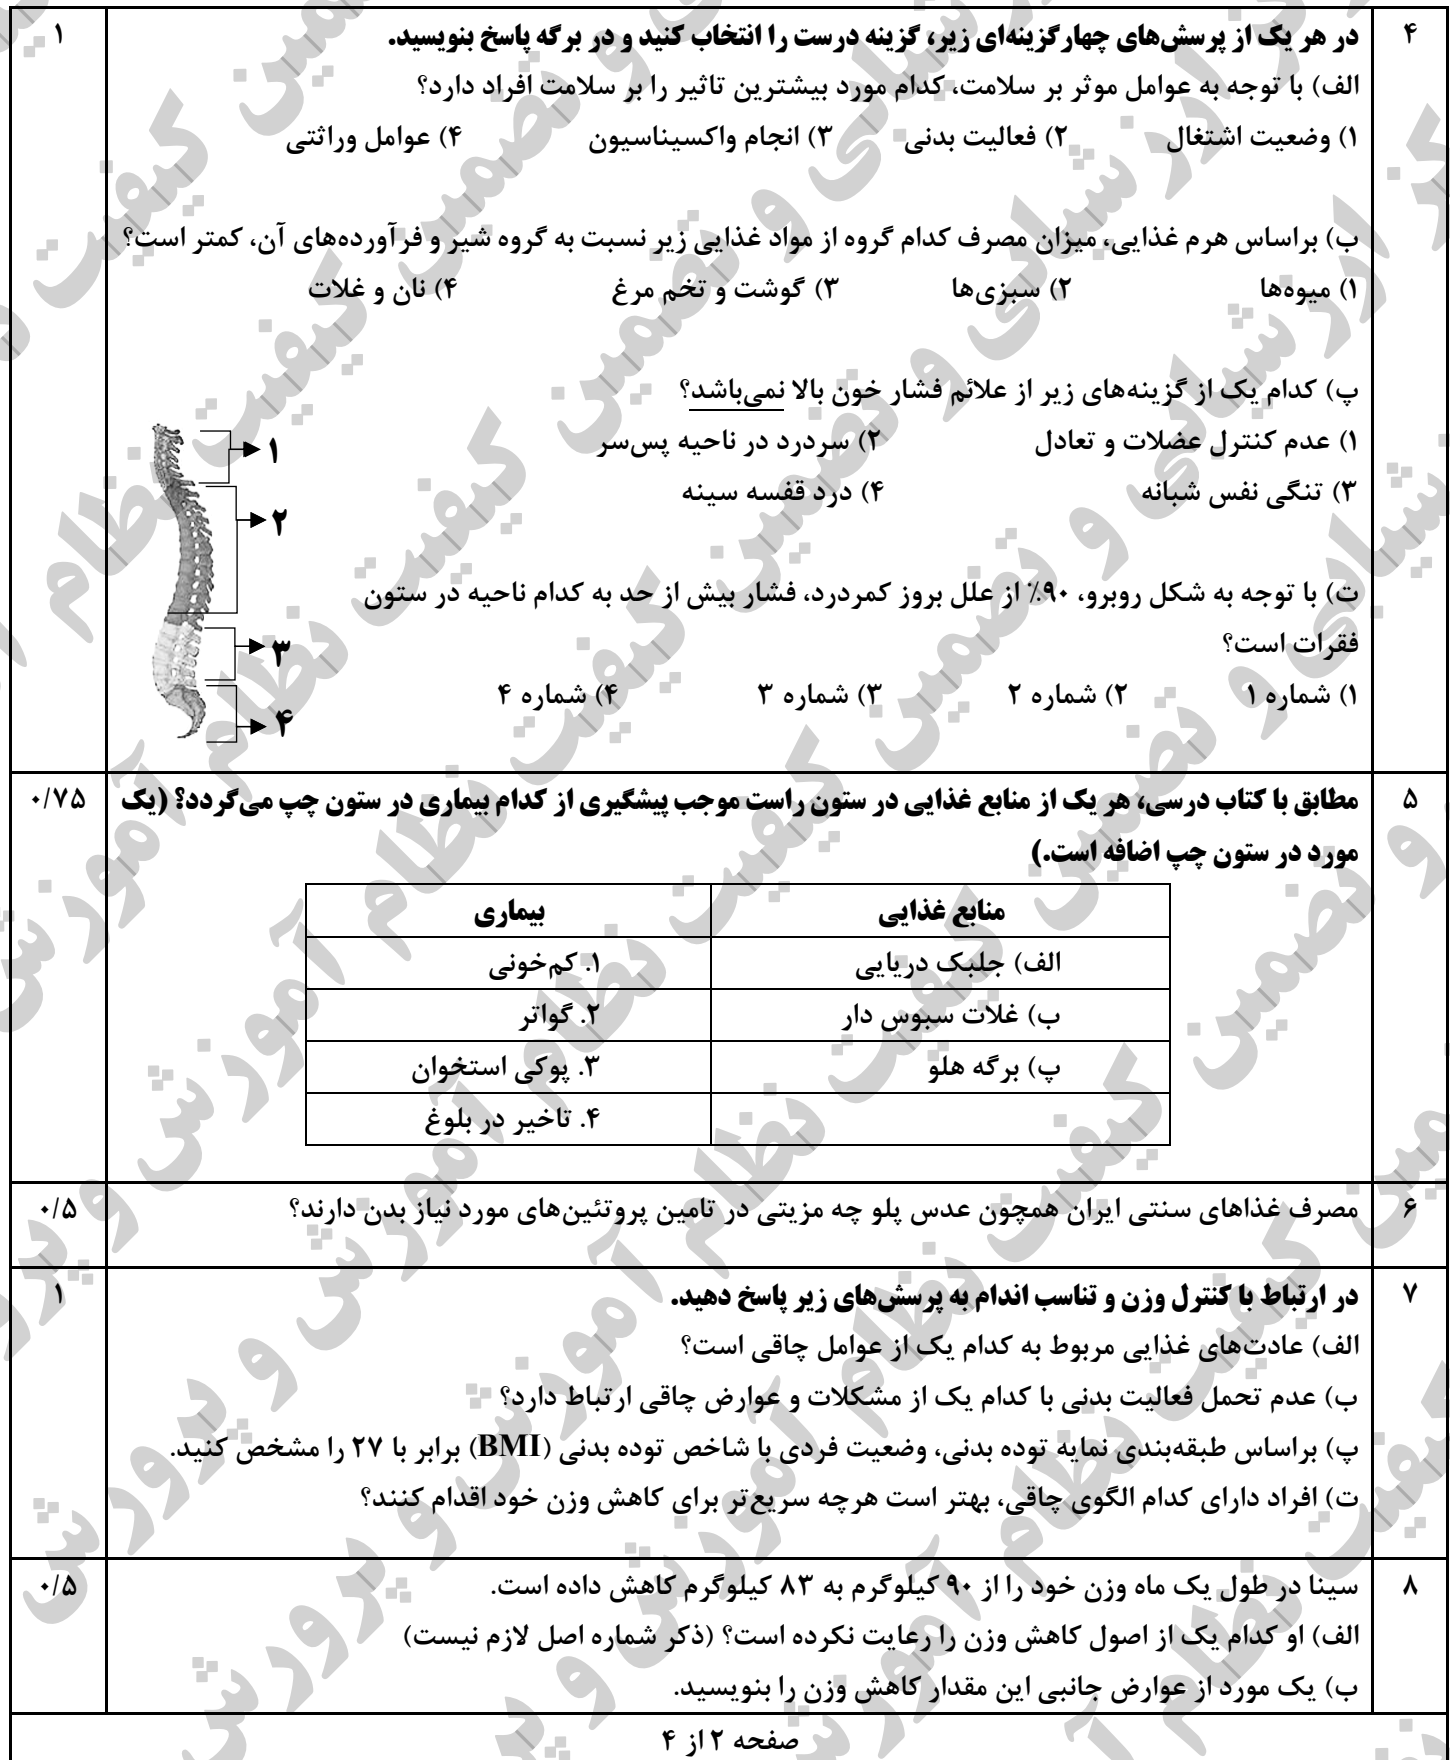 ۴ در هر یک از پرسش‌های چهارگزینه‌ای زیر، گزینه درست را انتخاب کنید و در برگه پاسخ بنویسید. ۱
الف) با توجه به عوامل موثر بر سلامت، کدام مورد بیشترین تاثیر را بر سلامت افراد دارد؟
۱) وضعیت اشتغال ۲) فعالیت بدنی ۳) انجام واکسیناسیون ۴) عوامل وراثتی
ب) براساس هرم غذایی، میزان مصرف کدام گروه از مواد غذایی زیر نسبت به گروه شیر و فرآورده‌های آن، کمتر است؟
۱) میوه‌ها ۲) سبزی‌ها ۳) گوشت و تخم مرغ ۴) نان و غلات
پ) کدام یک از گزینه‌های زیر از علائم فشار خون بالا نمی‌باشد؟
۱) عدم کنترل عضلات و تعادل ۲) سردرد در ناحیه پس‌سر
۳) تنگی نفس شبانه ۴) درد قفسه سینه
ت) با توجه به شکل روبرو، ۹۰٪ از علل بروز کمردرد، فشار بیش از حد به کدام ناحیه در ستون
فقرات است؟
۱) شماره ۱ ۲) شماره ۲ ۳) شماره ۳ ۴) شماره ۴
۱
۲
۳
۴
۵ مطابق با کتاب درسی، هر یک از منابع غذایی در ستون راست موجب پیشگیری از کدام بیماری در ستون چپ می‌گردد؟ (یک ۰/۷۵
مورد در ستون چپ اضافه است.)
منابع غذایی بیماری
الف) جلبک دریایی ۱. کم‌خونی
ب) غلات سبوس دار ۲. گواتر
پ) برگه هلو ۳. پوکی استخوان
۴. تاخیر در بلوغ
۶ مصرف غذاهای سنتی ایران همچون عدس پلو چه مزیتی در تامین پروتئین‌های مورد نیاز بدن دارند؟ ۰/۵
۷ در ارتباط با کنترل وزن و تناسب اندام به پرسش‌های زیر پاسخ دهید. ۱
الف) عادت‌های غذایی مربوط به کدام یک از عوامل چاقی است؟
ب) عدم تحمل فعالیت بدنی با کدام یک از مشکلات و عوارض چاقی ارتباط دارد؟
پ) براساس طبقه‌بندی نمایه توده بدنی، وضعیت فردی با شاخص توده بدنی (BMI) برابر با ۲۷ را مشخص کنید.
ت) افراد دارای کدام الگوی چاقی، بهتر است هرچه سریع‌تر برای کاهش وزن خود اقدام کنند؟
۸ سینا در طول یک ماه وزن خود را از ۹۰ کیلوگرم به ۸۳ کیلوگرم کاهش داده است. ۰/۵
الف) او کدام یک از اصول کاهش وزن را رعایت نکرده است؟ (ذکر شماره اصل لازم نیست)
ب) یک مورد از عوارض جانبی این مقدار کاهش وزن را بنویسید.
صفحه ۲ از ۴
مرکز ارزشیابی و تضمین کیفیت نظام آموزش و پرورش